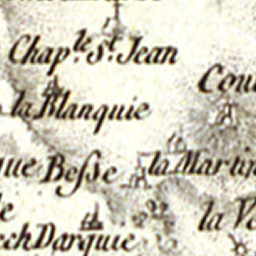 Chap.le St. Jean
la Blanquie
Besse
la Martin
la
ech Darquie